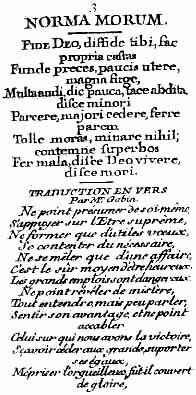 3
NORMA MORUM.
FIDE DEO, diffide tibi, fac
propria castas
Funde preces, paucis utere,
magna fuge,
Multa audi, dic pauca, tace abdita,
disce minori
Parcere, majori cedere, ferre
parem
Tolle moras, minare nihil;
contemne superbos
Fer mala, disce Deo vivere,
disce mori.
TRADUCTION EN VERS
Par Mr. Gobin.
Ne point présumer de soi-même,
S'appuyer sur l'Etre suprême,
Ne former que d'utiles vœux,
Se contenter du nécessaire,
Ne se mêler que d'une affaire,
C'est le sûr moyen d'être heureux.
Les grands emplois sont dangereux.
Ne point révéler de mistère,
Tout entendre, mais peu parler,
Sentir son avantage, et ne point
accabler
Celui sur qui nous avons la victoire,
Sçavoir céder aux grands, suporter
ses égaux,
Mépriser l'orgueilleux, fût-il couvert
de gloire,